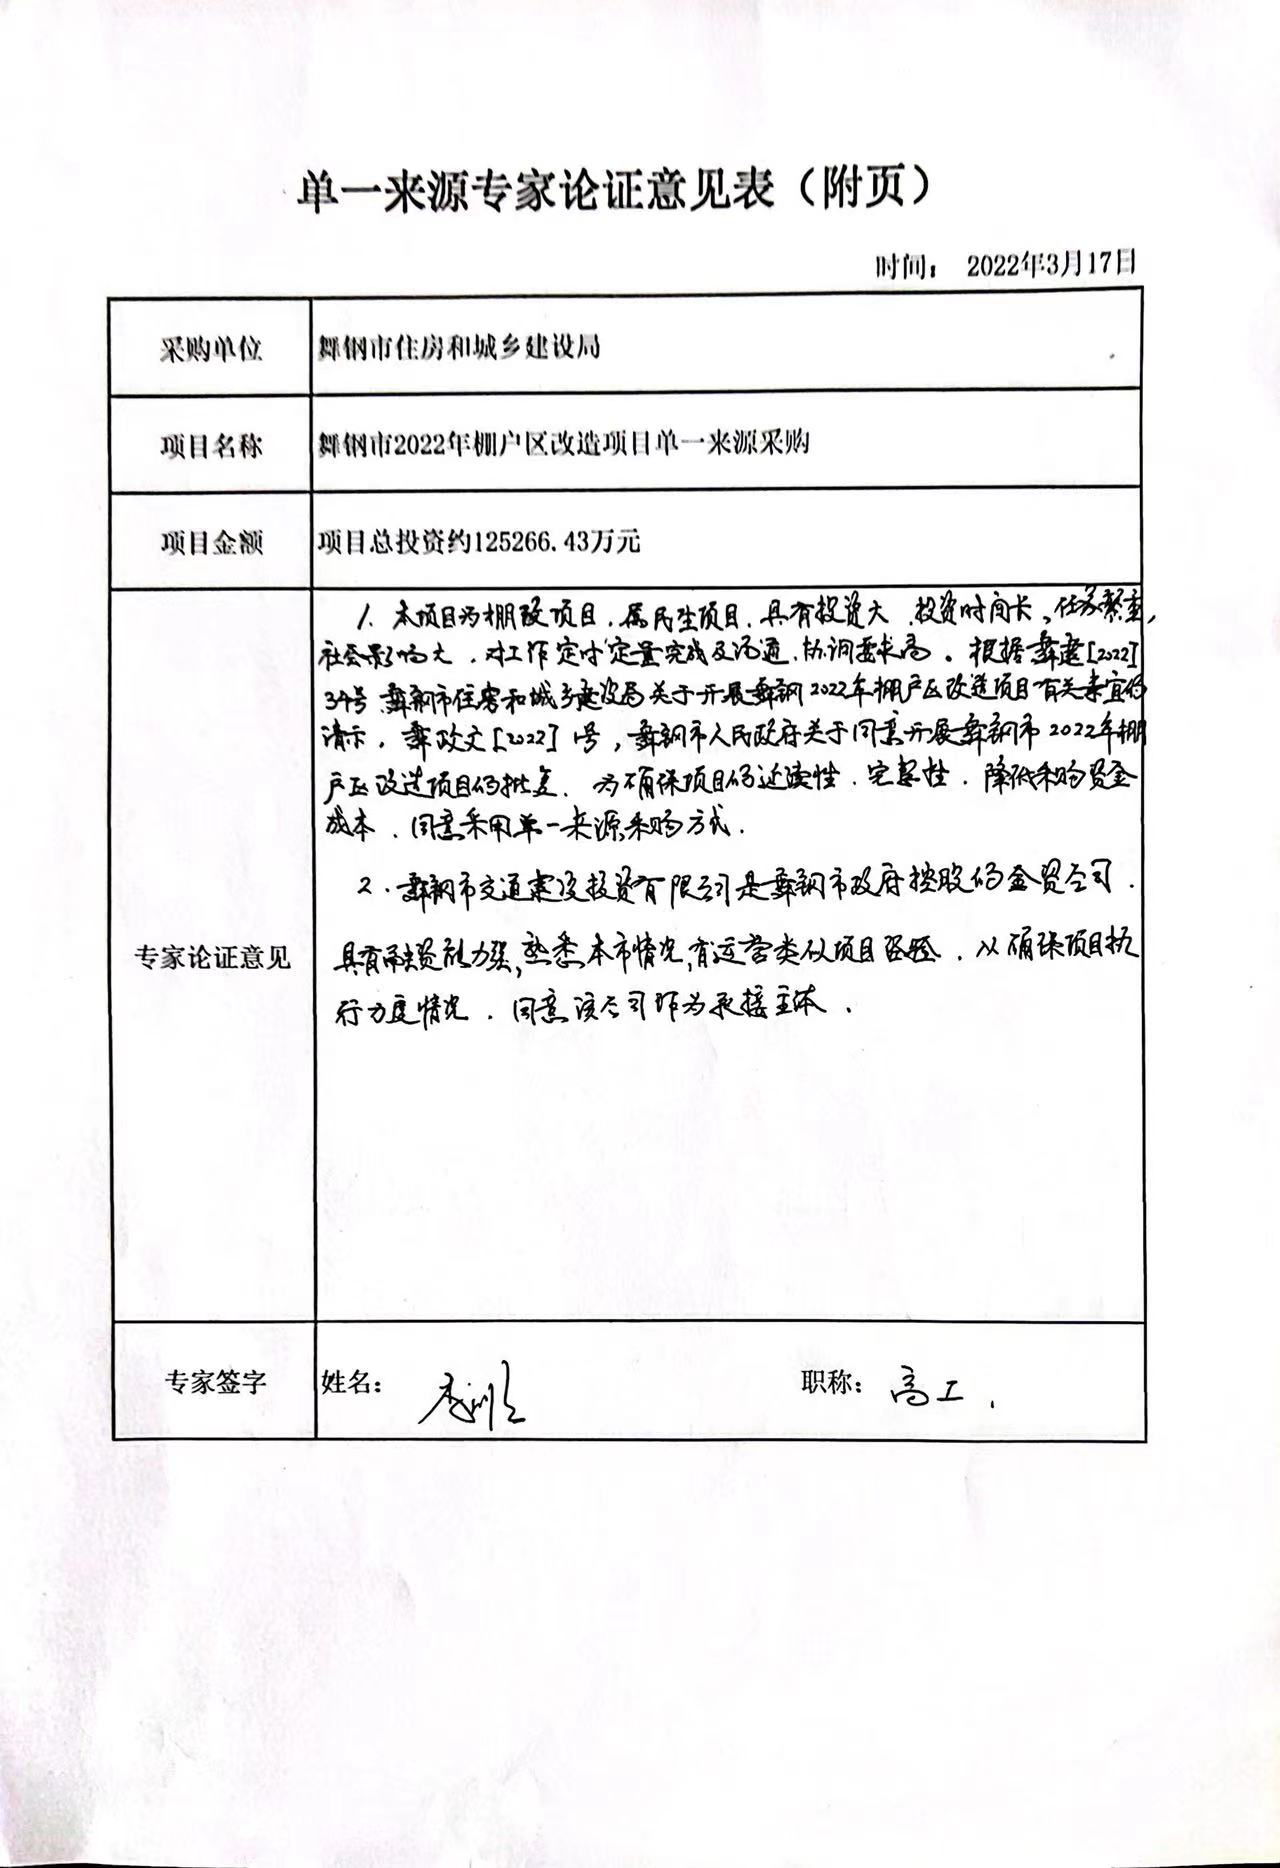 单一来源专家论证意见表（附页）
时间： 2022年3月17日
采购单位
舞钢市住房和城乡建设局
项目名称
舞钢市2022年棚户区改造项目单一来源采购
项目金额
项目总投资约125266.43万元
专家论证意见
1. 本项目为棚改项目，属民生项目，具有投资大，投资时间长，任务繁重，
社会影响大，对工作定时定量完成及沟通、协调要求高。根据舞建[2022]
34号 舞钢市住房和城乡建设局关于开展舞钢2022年棚户区改造项目有关事宜的
请示，舞政文[2022] 1号，舞钢市人民政府关于同意开展舞钢市2022年棚
户区改造项目的批复，为确保项目的连续性，完整性，降低采购资金
成本，同意采用单一来源采购方式.
2. 舞钢市交通建设投资有限公司是舞钢市政府控股的全资公司.
具有融资能力强，熟悉本市情况，有运营类似项目经验，从确保项目执
行力度情况，同意该公司作为承接主体.
专家签字
姓名：
职称： 高工.